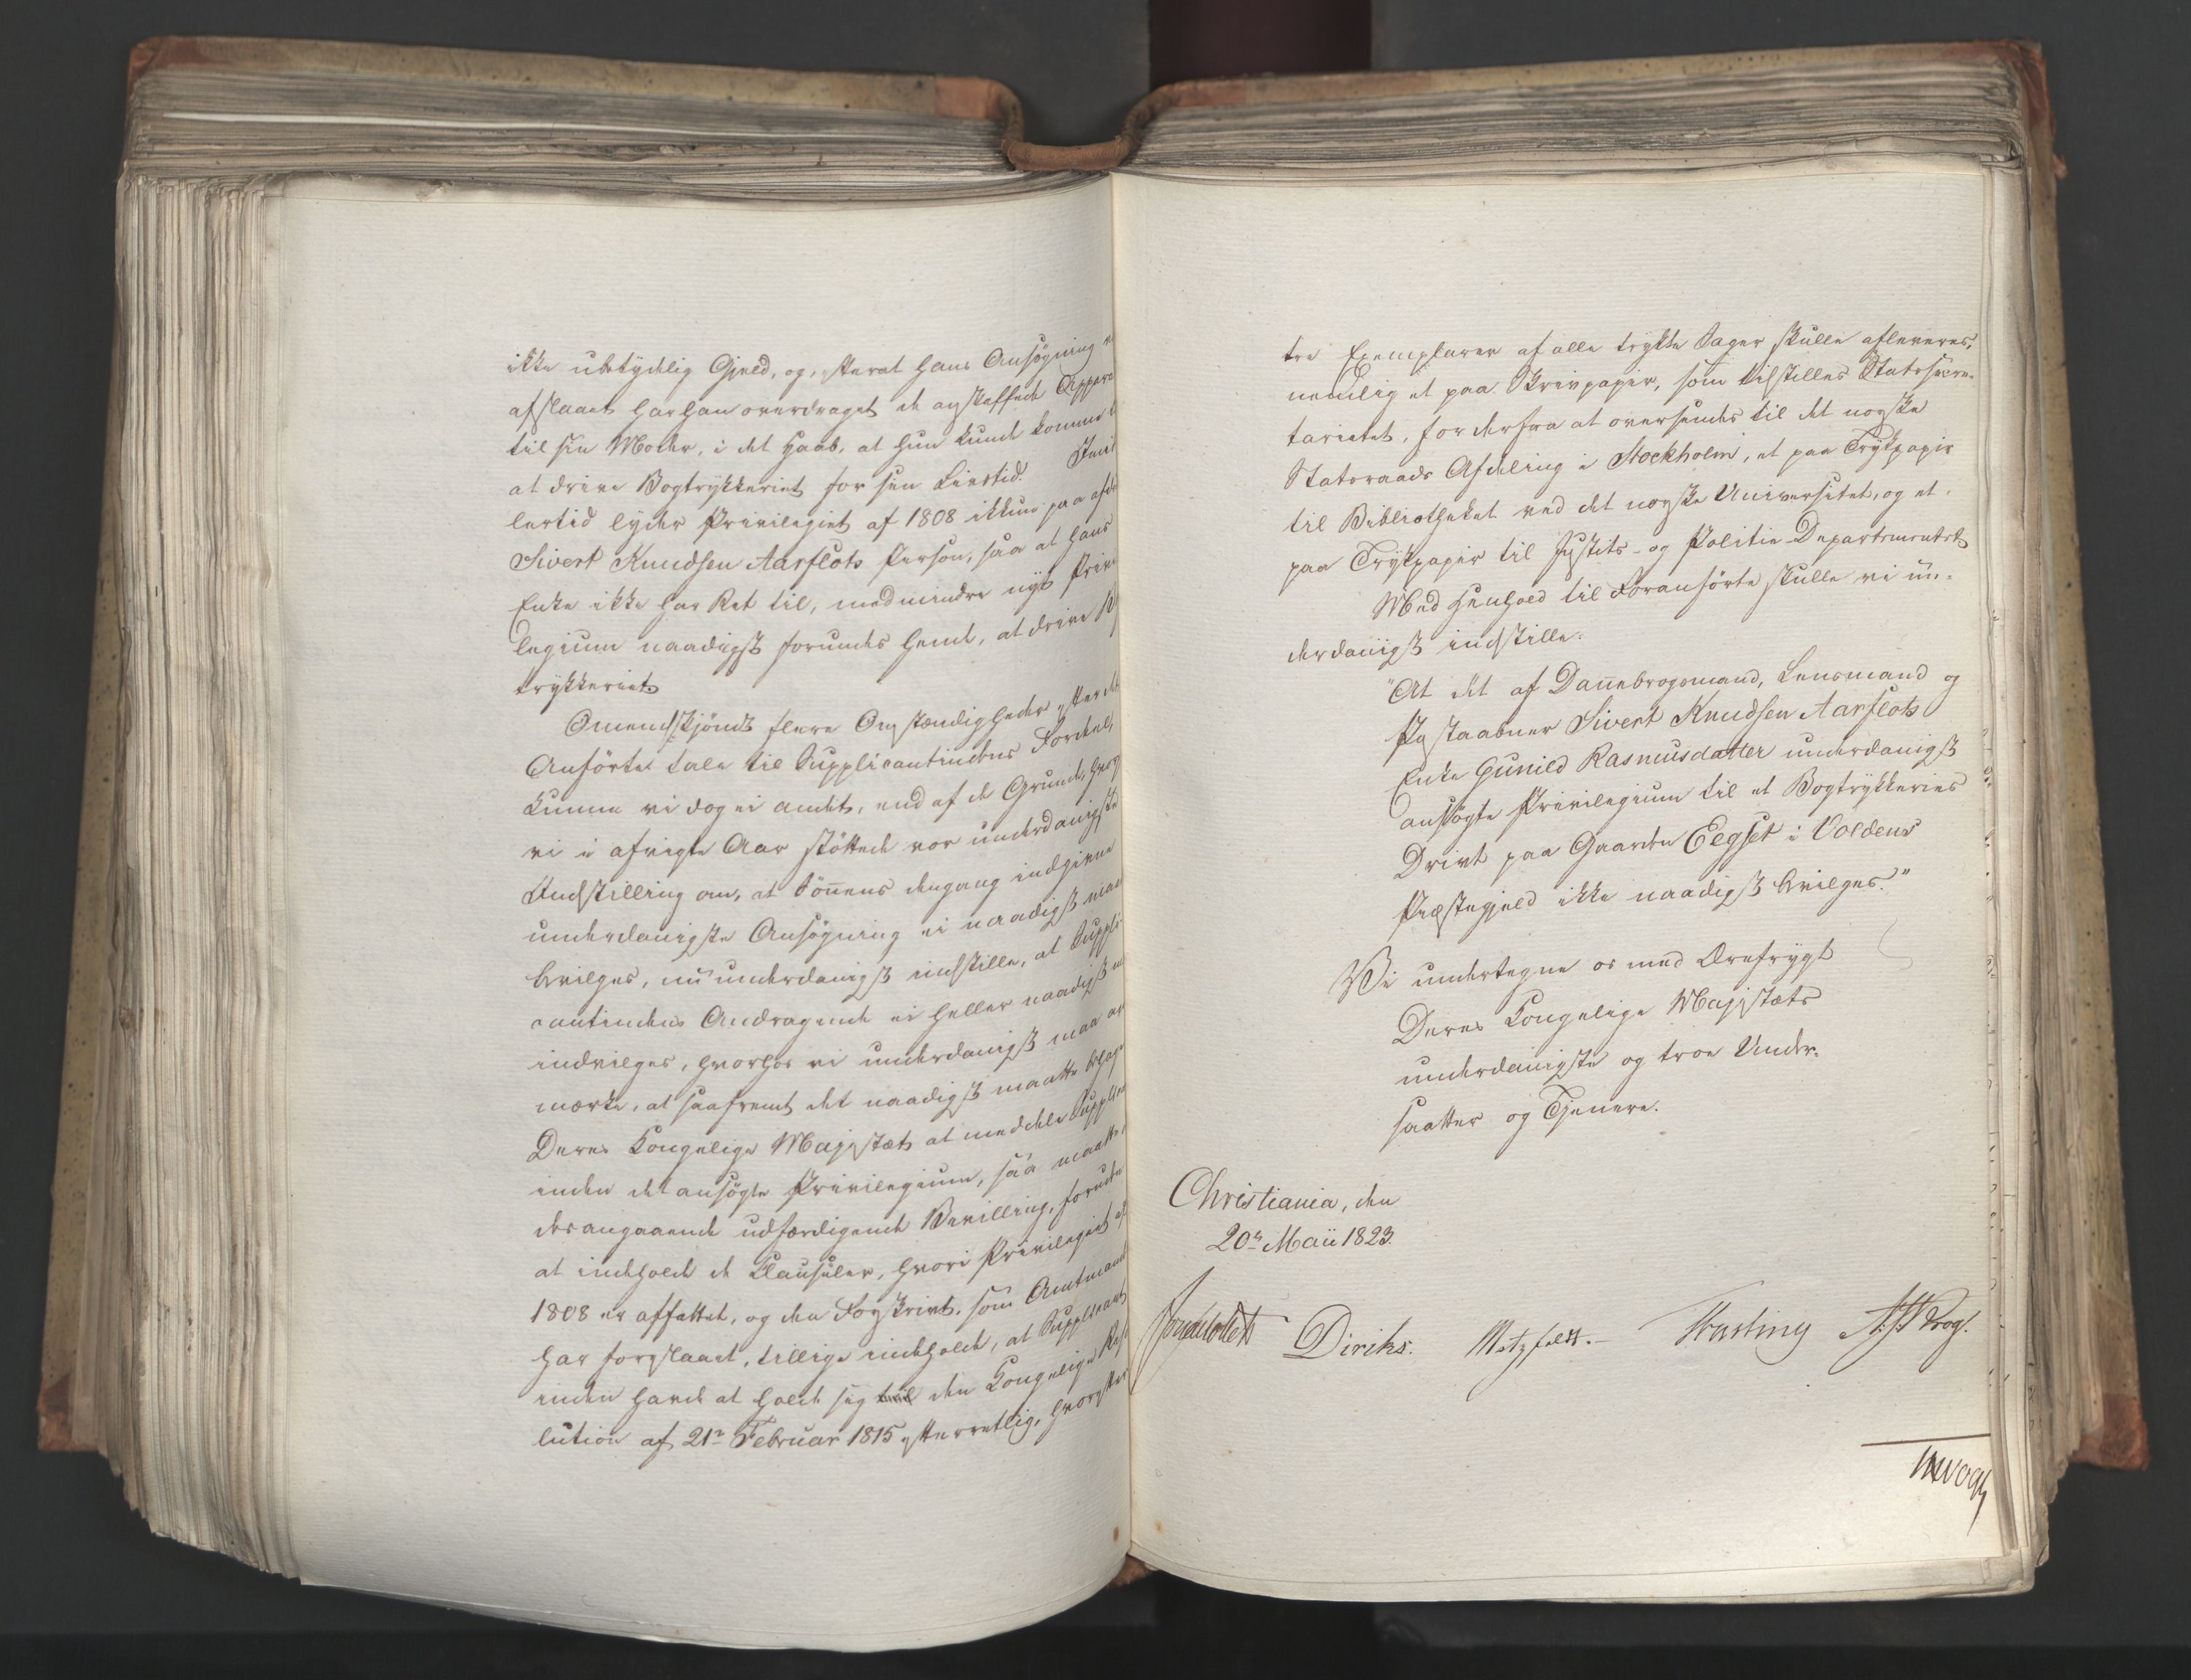 ikke ubetydelig Gjeld, og, efterat hans Ansøgning
afslaaet har han overdraget de anskaffede Appara
til sin Moder, i det Haab, at hun kunde komme
at drive Bogtrykkeriet for sin Livstid. Imid
lertid lyder Privilegiet af 1808 ikkun paa afdø
Sivert Knudsen Aarflots Person, saa at hans
Enke ikke har Ret til, medmindre nyt Privi
legium naadigst forundes hende, at drive
trykkeriet
Omendskjöndt flere Omstændigheder efter det
Anförte tale til Supplicantindens Fordeel,
kunne vi dog ei andet, end af de Grunde, hvor
vi i afvigte Aar stöttede vor underdanigste
Indstilling om, at Sönnens dengang indgivne
underdanigste Ansögning ei naadigst maa
bevilges, nu underdanigst indstille, at Suppli
cantindens Andragende ei heller naadigst
indvilges, hvorhos vi underdanigst maa an
mærke, at saafremt det naadigst maatte behage
Deres Kongelige Majestæt at meddele Supplicant
inden det ansögte Privilegium, saa maatte,
desangaaende udfærdigende Bevilling, foruden
at indeholde de Clausuler, hvori Privilegiet af
1808 er affattet, og den Forskrivt, som Amtmand
har foreslaaet, tillige indeholde, at Supplicant
inden havde at holde sig den Kongelige Reso
lution af 21de Februar 1815 efterrettelig, hvorefter
tre Exemplarer af alle trykte Sager skulle afleveres,
nemlig et paa Skrivpapir, som tilstilles Statssecre-
tariatet, for derfra at oversendes til det norske
Statsraads Afdeling i Stockholm, et paa Trykpapir
til Bibliotheket ved det norske Universitet, og et
paa Trykpapir til Justits- og Politie-Departementet
Med Henhold til Foranförte skulle vi un-
derdanigst indstille:
"At det af Dannebrogsmand, Lensmand og
Postaabner Sivert Knudsen Aarflots
Enke Gunild Rasmusdatter underdanigst
ansögte Privilegium til et Bogtrykkeries
Drivt paa Gaarden Eegset i Voldens
Præstegjeld ikke naadigst bevilges."
Vi undertegne os med Ærefrygt
Deres Kongelige Majestæts
underdanigste og troe Under-
saatter og Tjenere.
Christiania, den
20de Maii 1823.
Diriks. Motzfeldt. Fasting Vogt.